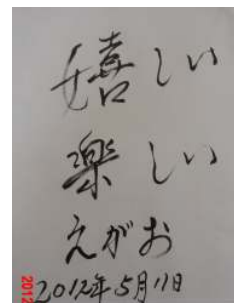 嬉しい
楽しい
えがお
2012年5月11日
2012